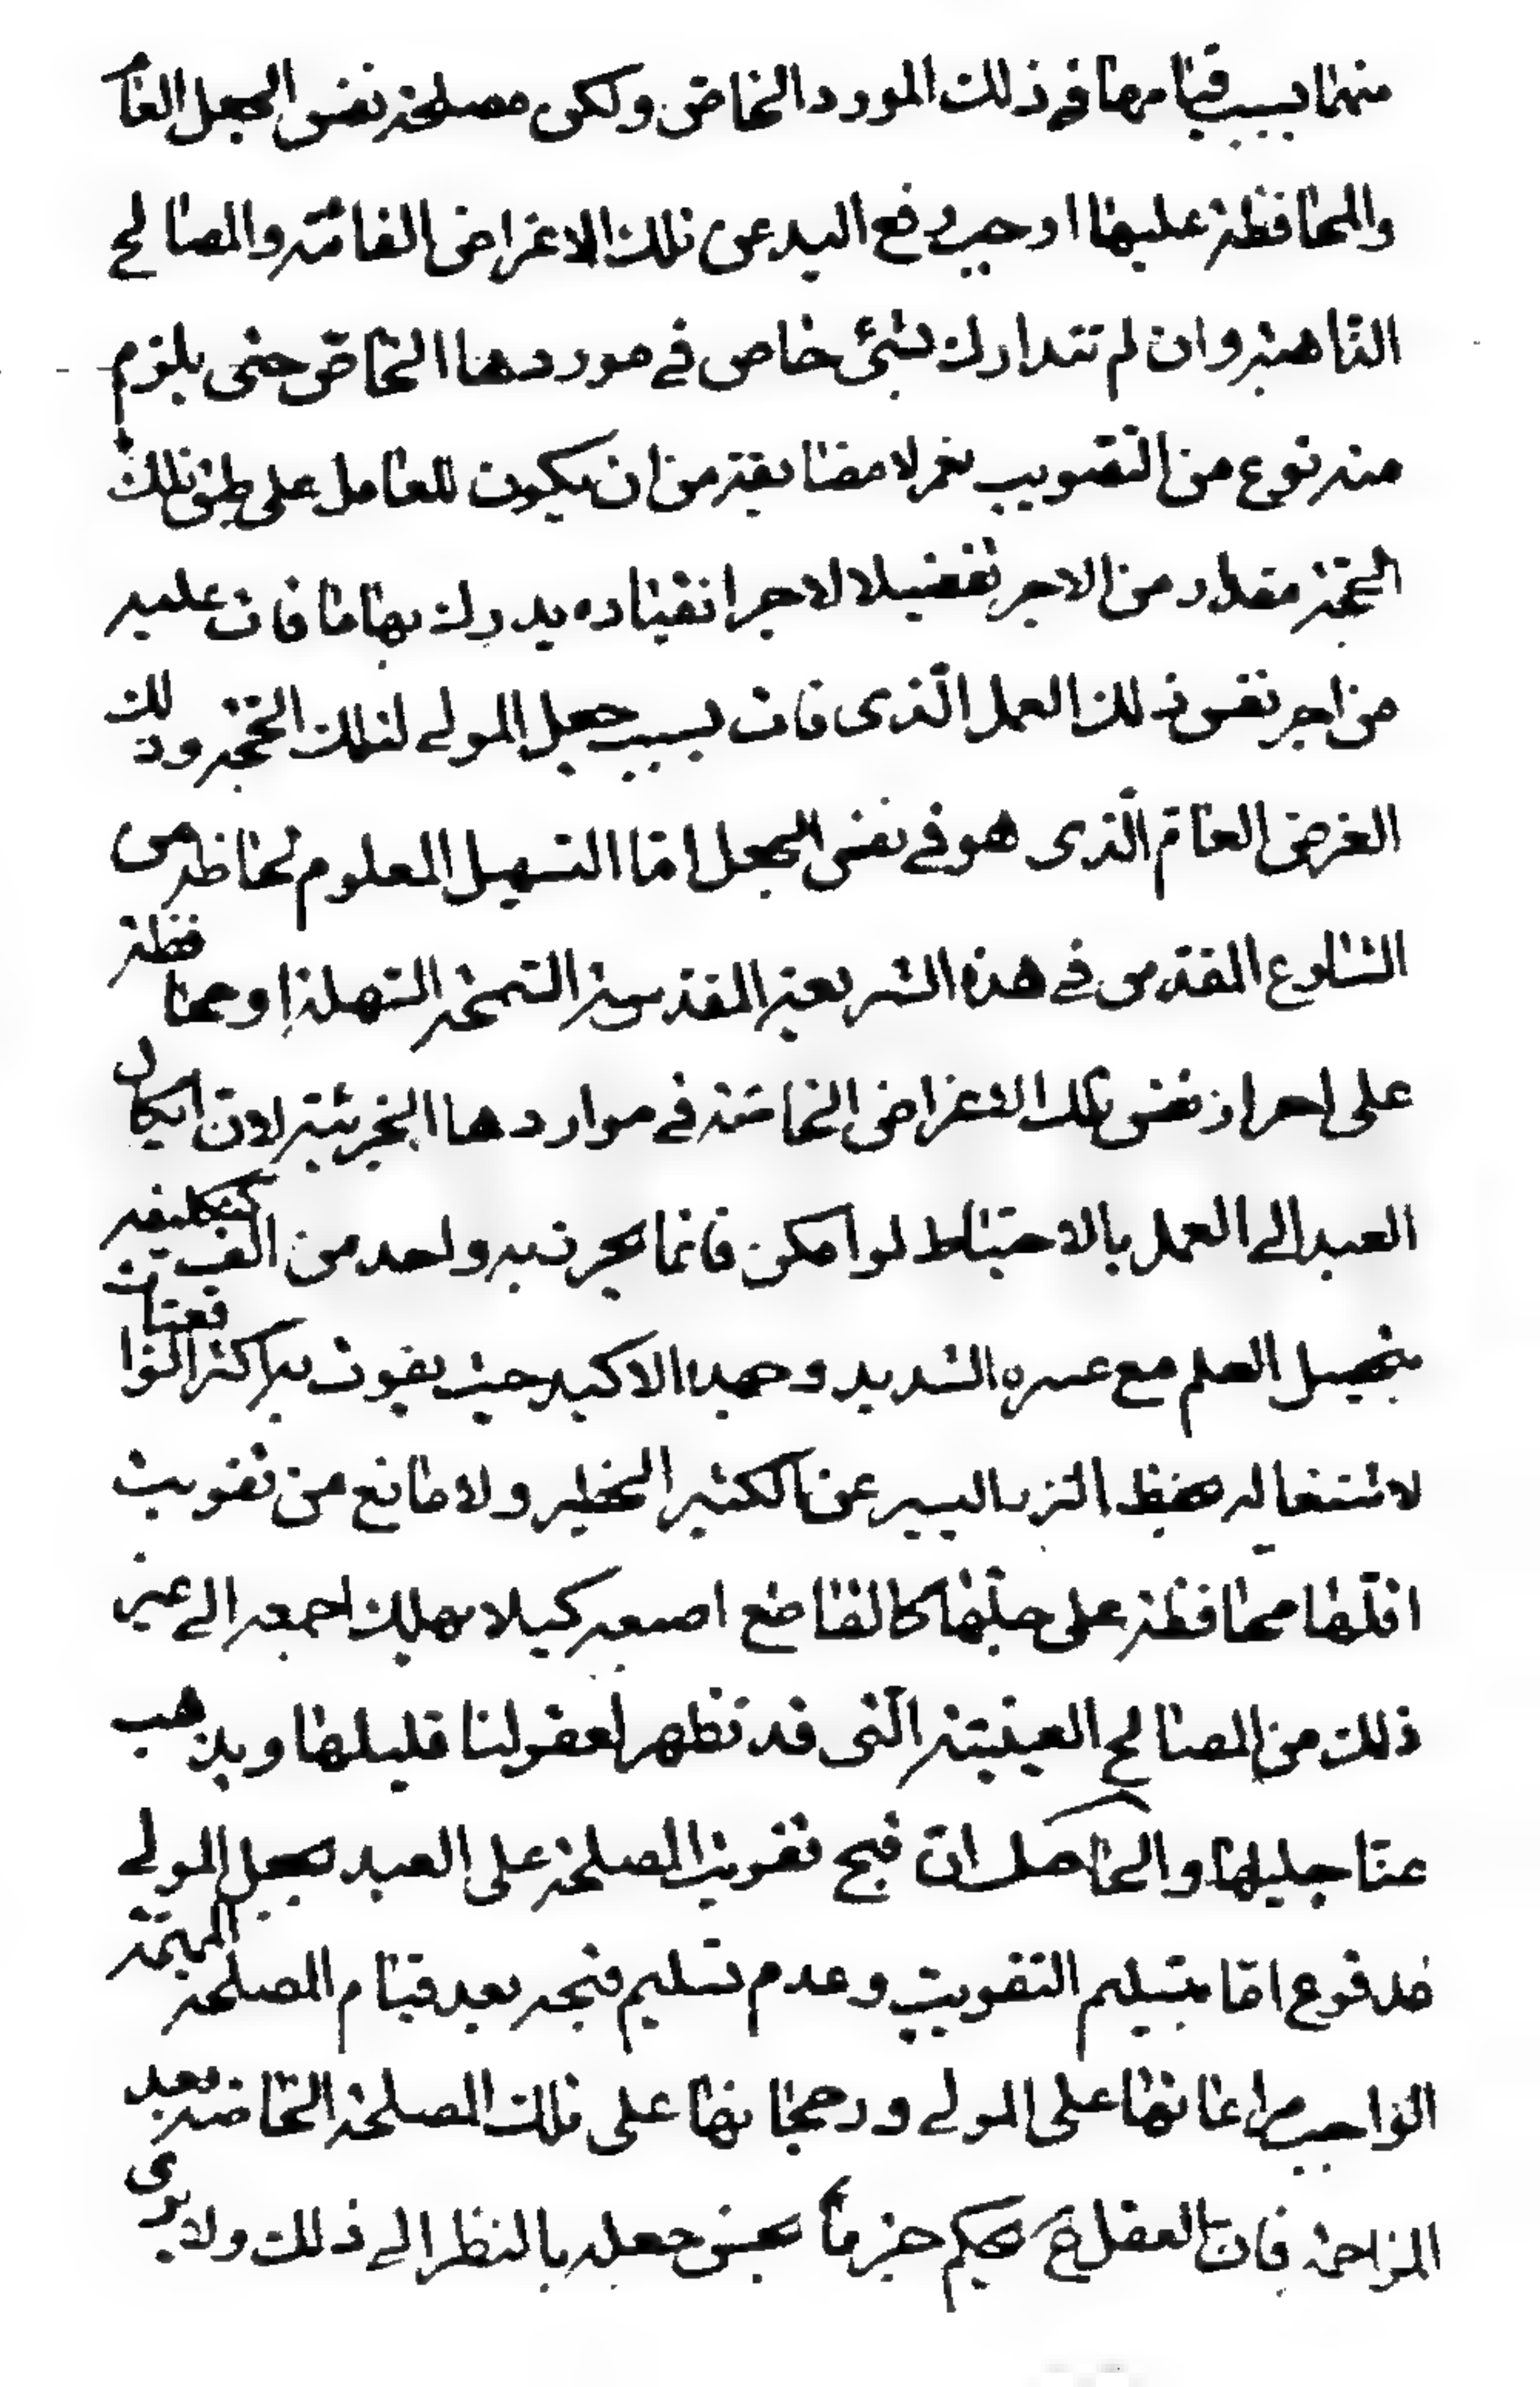 منهما بسبب قيامها في ذلك المورد الخاص ولكن مصلحة نفس الجعل العام
والمحافظة عليها اوجب رفع اليد عن تلك الاغراض القائمة والمصالح
الذاهبة وان لم تتدارك بشئ خاص في موردها الخاص حتى يلزم
منه نوع من التصويب نعم لا مضايقة من ان يكون للعامل على طبق تلك
الحجّة مقدار من الاجر تفضيلا لاجر انقياده يدرك بها ما فات عليه
من اجر نفس ذلك العمل الّذى فات بسبب جعل المولى لتلك الحجّة وذلك
الغرض العام الّذى هو في نفس الجعل امّا التسهيل المعلوم لحاظه من
الشارع المقدس في هذه الشريعة المقدسة السمحة السهلة او محافظة
على احراز نفس تلك الاغراض الخاصّة في مواردها الجزئية لانّ ايكال
العبد الى العمل بالاحتياط لو امكن فانما يحرز به واحد من الف كتكليفه
بتحصيل العلم مع عسره الشديد وجهده الاكيد حيث يفوت به اكثر الواقعيّات
لاشتغاله بحفظ النزر اليسير عن الكثير الخطير ولا مانع من تفويت
اقلّها محافظة على جلّها كالقاطع اصبعه كيلا يهلك اجمعه الى غير
ذلك من المصالح الغيبيّة الّتى قد تظهر لعقولنا قليلها ويذهب
عنّا جليلها والحاصل انّ قبح تفويت المصلحة على العبد بجعل المولى
مدفوع امّا بتسليم التفويت وعدم تسليم قبحه بعد قيام المصلحة المهمّة
الواجب مراعاتها على المولى ورجحانها على تلك المصلحة الخاصّة بعد
المزاحمة فانّ العقل ح يحكم جزماً بحسن جعله بالنظر الى ذلك ولا يرى